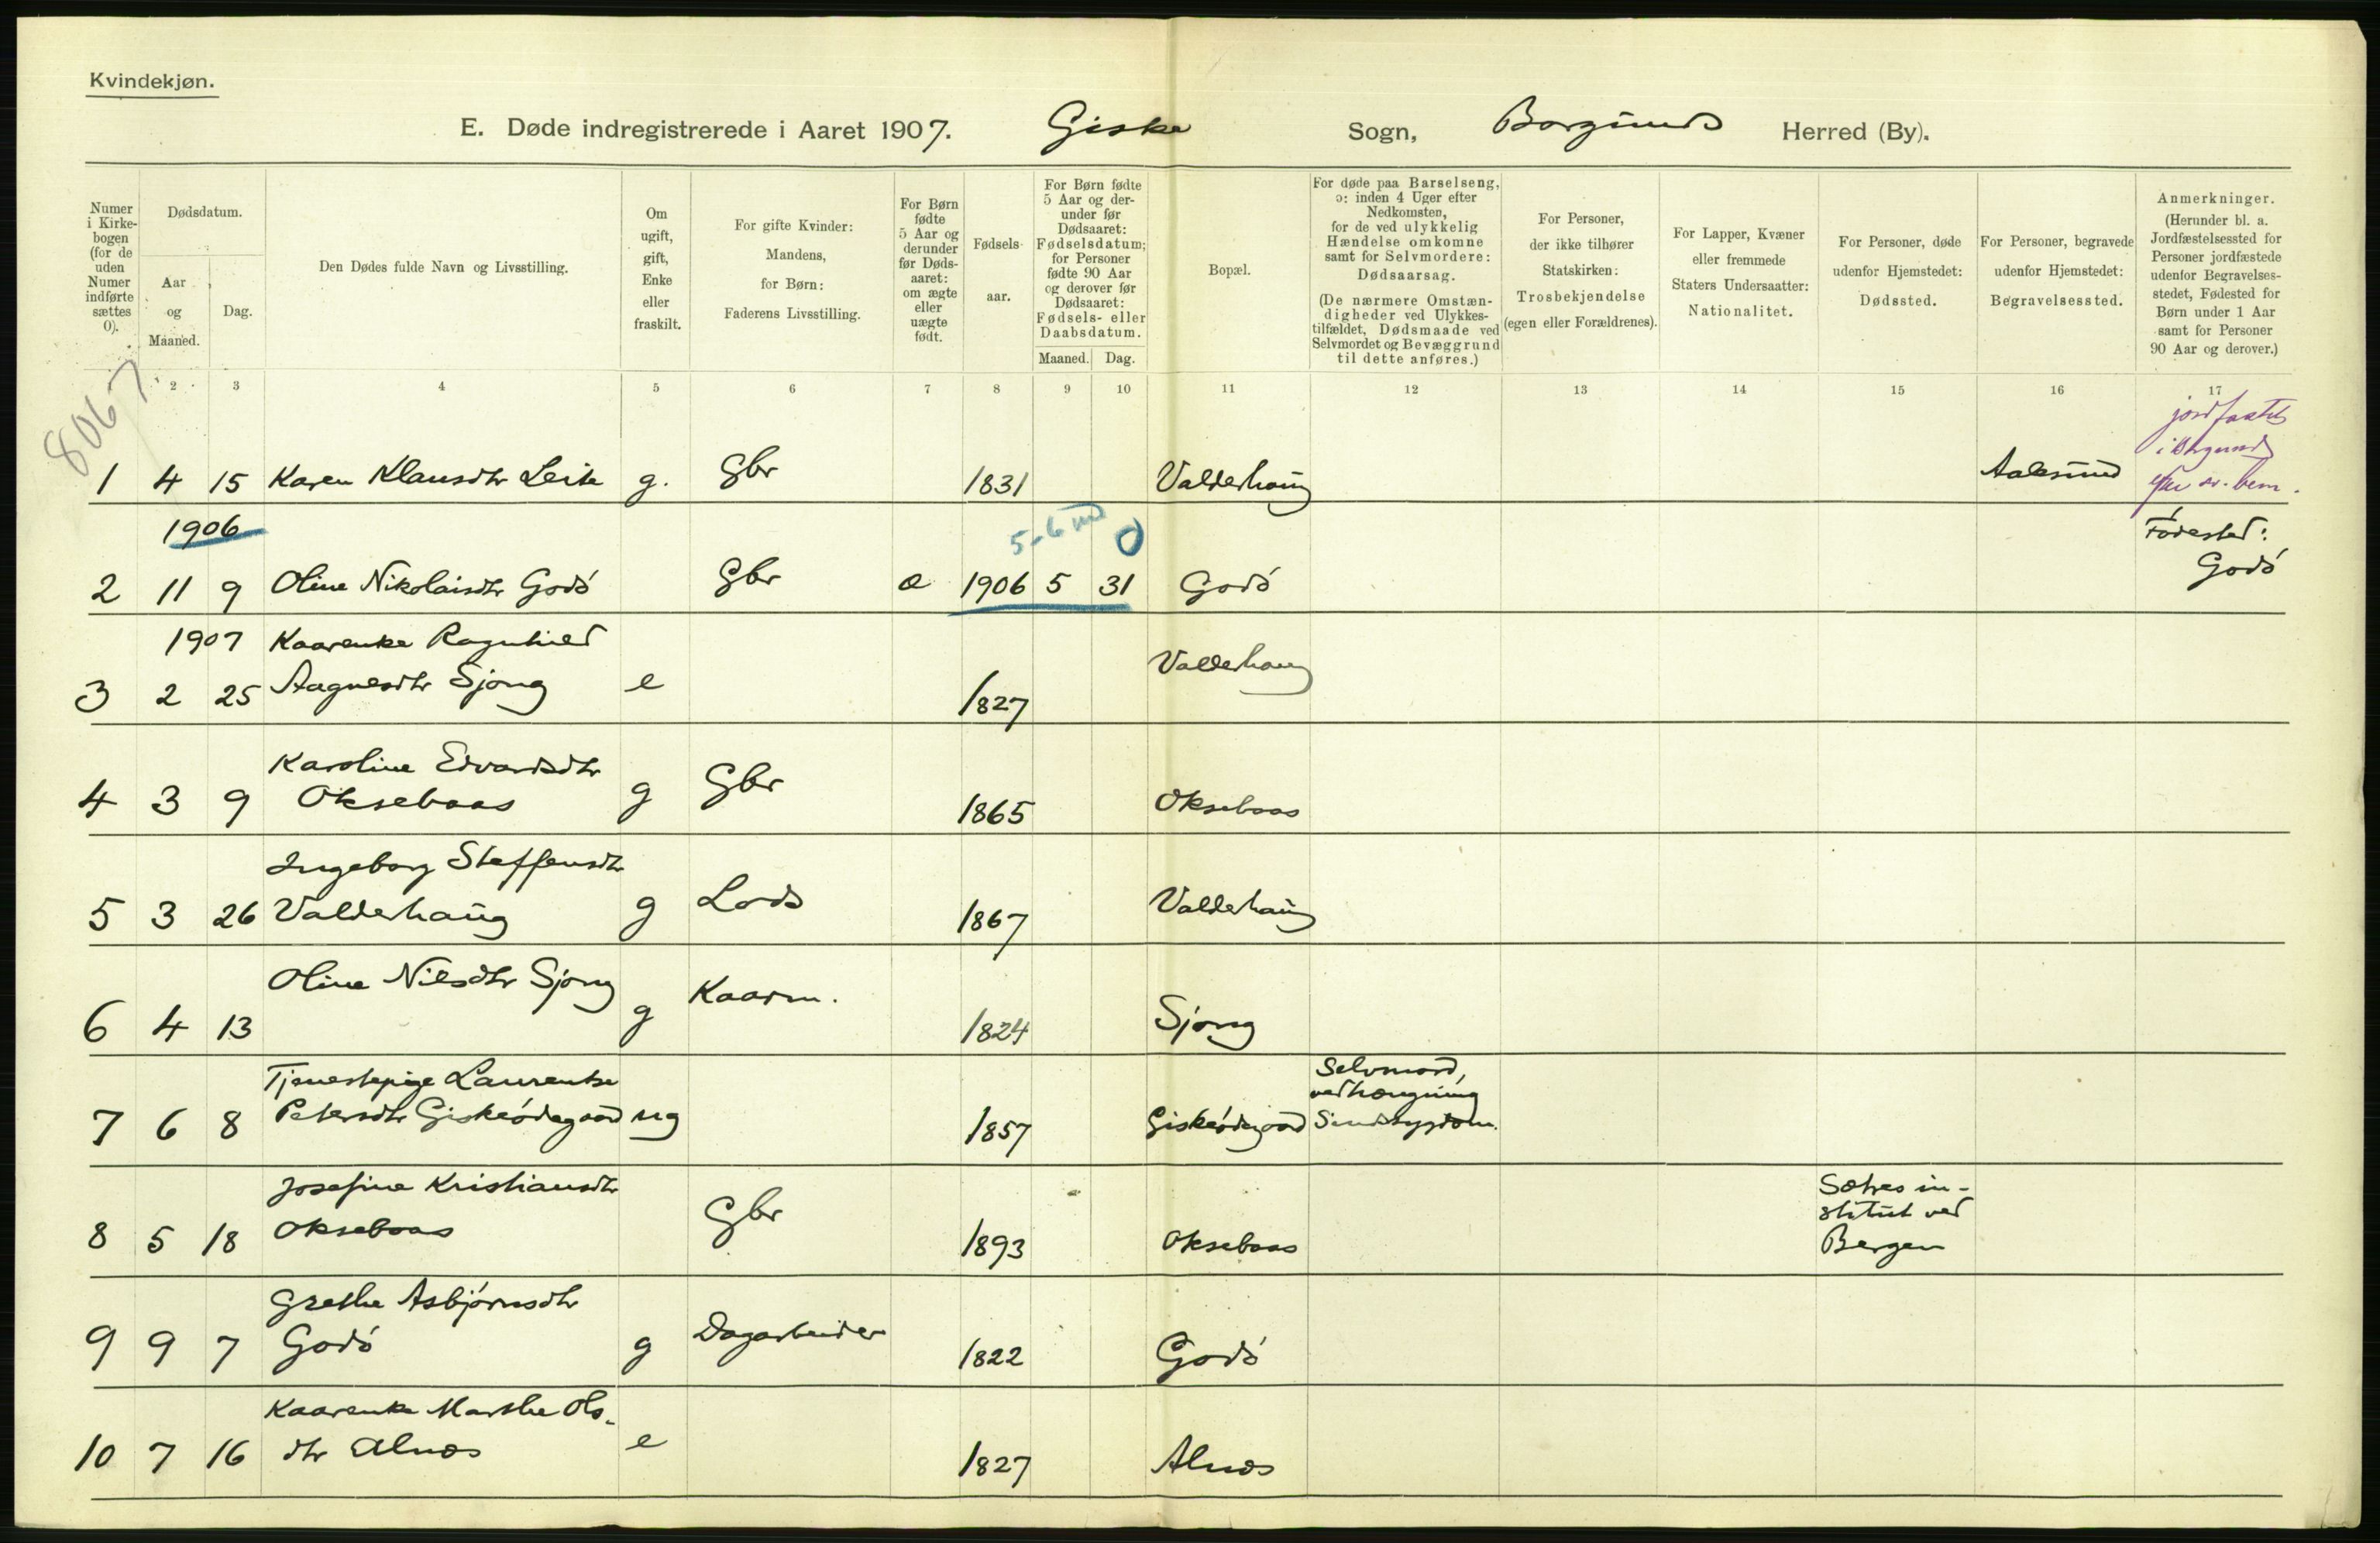 Kvindekjøn.
E. Døde indregistrerede i Aaret 1907. Giske Sogn, Borgund Herred (By).
Numer i Kirkebogen (for de uden Numer indførte sættes 0).
Dødsdatum.
Aar og Maaned.
Dag.
Den Dødes fulde Navn og Livsstilling.
Om ugift, gift, Enke eller fraskilt.
For gifte Kvinder: Mandens, for Børn: Faderens Livsstilling.
For Børn fødte 5 Aar og derunder før Dødsaaret: om ægte eller uægte født.
Fødselsaar.
For Børn fødte 5 Aar og derunder før Dødsaaret: Fødselsdatum; for Personer fødte 90 Aar og derover før Dødsaaret: Fødsels- eller Daabsdatum.
Maaned. Dag.
Bopæl.
For døde paa Barselseng, ɔ: inden 4 Uger efter Nedkomsten, for de ved ulykkelig Hændelse omkomne samt for Selvmordere: Dødsaarsag.
(De nærmere Omstændigheder ved Ulykkestilfældet, Dødsmaade ved Selvmordet og Bevæggrund til dette anføres.)
For Personer, der ikke tilhører Statskirken: Trosbekjendelse (egen eller Forældrenes).
For Lapper, Kvæner eller fremmede Staters Undersaatter: Nationalitet.
For Personer, døde udenfor Hjemstedet: Dødssted.
For Personer, begravede udenfor Hjemstedet: Begravelsessted.
Anmerkninger.
(Herunder bl. a. Jordfæstelsessted for Personer jordfæstede udenfor Begravelsesstedet, Fødested for Børn under 1 Aar samt for Personer 90 Aar og derover.)
2 3 4 5 6 7 8 9 10 11 12 13 14 15 16 17
8067
1 4 15 Karen Klausdtr Leite g. Gbr 1831 Valderhaug Aalesund
jordfæstet
i Borgund
1906 5-6 md Fødested:
2 11 9 Oline Nikolaisdtr Godö Gbr æ 1906 5 31 Godö Godö
1907 Kaarenke Ragnhild
3 2 25 Aagnesdtr Sjong e 1827 Valderhaug
Karoline Edvardsdtr
4 3 9 Oksebaas g Gbr 1865 Oksebaas
Ingeborg Steffensdtr
5 3 26 Valderhaug g Lods 1867 Valderhaug
Oline Nilsdtr Sjong
6 4 13 g Kaarm. 1824 Sjong
Tjenestepige Laurentse Selvmord,
ved hængning
7 6 8 Petersdtr Giskeödegaard ug 1857 Giskeödegaard Sindssygdom.
Josefine Kristiansdtr Sætres in-
stitut ved
8 5 18 Oksebaas Gbr 1893 Oksebaas Bergen
Grethe Asbjörnsdtr
9 9 7 Godö g Dagarbeider 1822 Godö
Kaarenke Marthe Ols-
10 7 16 dtr Alnæs e 1827 Alnæs